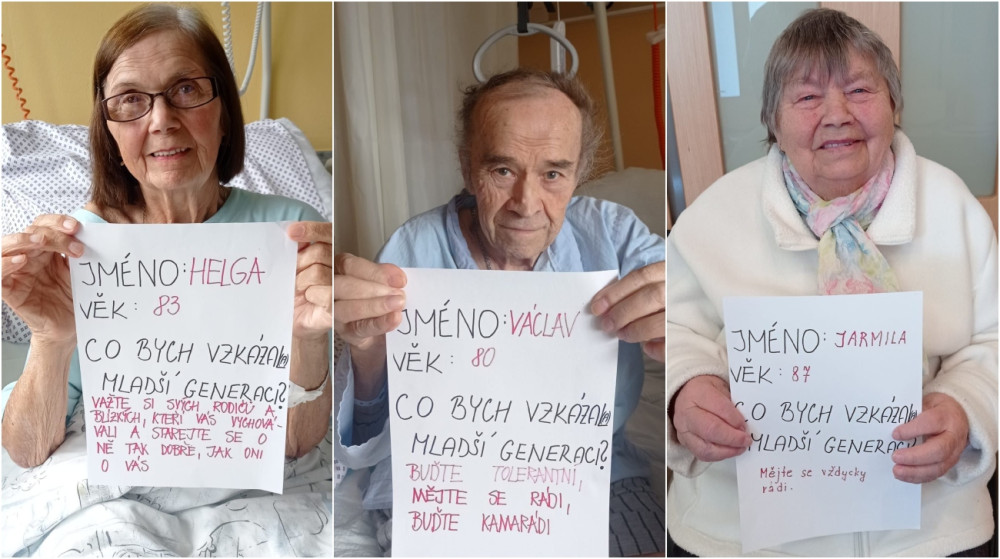 JMÉNO: HELGA
VĚK: 83
CO BYCH VZKÁZAL(A)
MLADŠÍ GENERACI?
VAŽTE SI SVÝCH RODIČŮ A
BLÍZKÝCH, KTEŘÍ VÁS VYCHOVÁ-
VALI A STAREJTE SE O
NĚ TAK DOBŘE, JAK ONI
O VÁS
JMÉNO: VÁCLAV
VĚK: 80
CO BYCH VZKÁZAL(A)
MLADŠÍ GENERACI?
BUĎTE TOLERANTNÍ,
MĚJTE SE RÁDI,
BUĎTE KAMARÁDI
JMÉNO: JARMILA
VĚK: 87
CO BYCH VZKÁZAL(A)
MLADŠÍ GENERACI?
Mějte se vždycky
rádi.